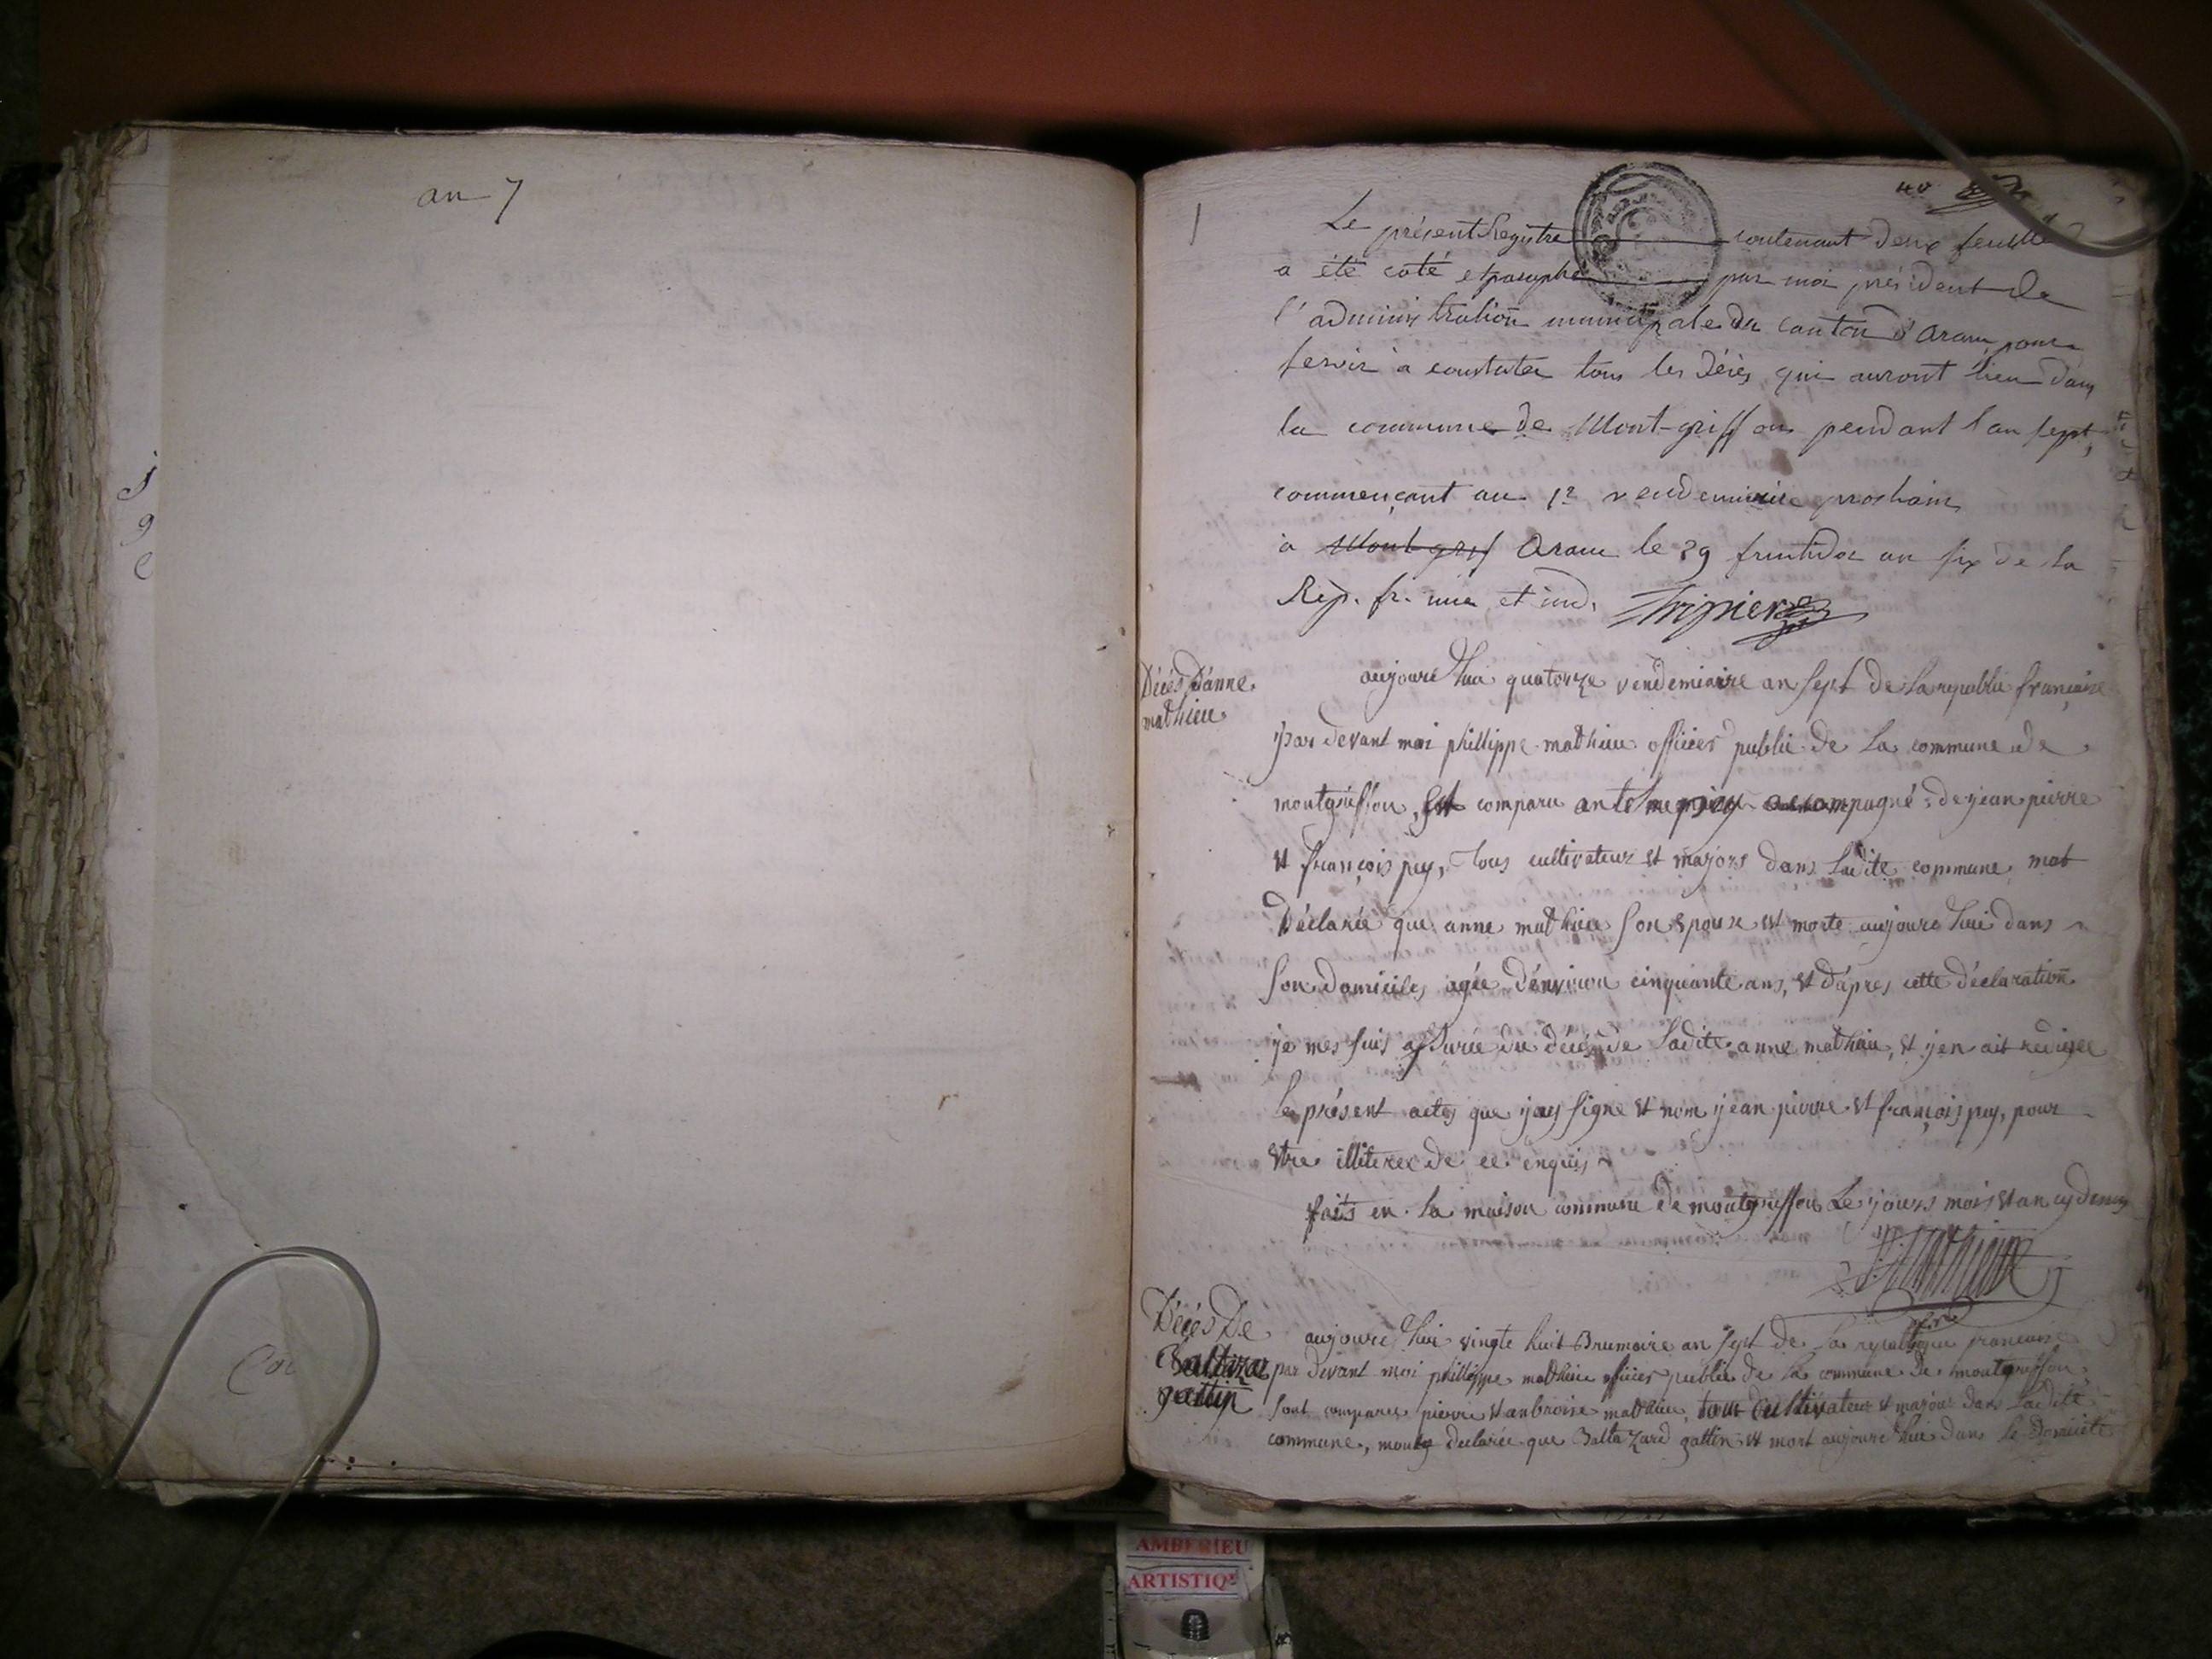 an 7
Le présent Registre contenant deux feuilles
a été coté et paraphé par moi président de
l'administration municipale du canton d'Aranc, pour
servir à constater tous les décès qui auront lieu dans
la commune de Mont-griffon pendant l'an sept,
commençant au 1er vendemiaire prochain
à Mont grif Aranc le 29 fructidor an six de la
Rép. fr. une et ind. Tripier
Décés D'anne
mathieu
aujourd'hui quatorze vendemiaire an sept de la republi française
par devant moi phillippe mathieu officier public de la commune de
montgriffon, Est comparu antelme pey accompagné de jean pierre
et françois pey, tous cultivateur et majors dans ladite commune mat
Déclarée que anne mathieu son epouse est morte aujourd'hui dans
son domiciles agée d'environ cinquante ans, et d'apres cette déclaration
je mes suis assurée du décés de ladite anne mathieu, et j'en ait redigee
le présent actes que jay signe et nom jean pierre et françois pey, pour
etre illiteree de ce enquis
faits en la maison commune de montgriffon Le jours mois et an cy desus
P. Mathieu
Décés De
Baltizar
gattin
aujourd'hui vingte huit Brumaire an sept de la republique francaise
par devant moi phillippe mathieu officier public de la commune de montgriffon
sont comparus pierre et anbroise mathieu, tous Cultivateur et majour dans ladite
commune, monty declarée que Baltazard gattin et mort aujourd'hui dans le domicile
AMBERIEU
ARTISTIQ